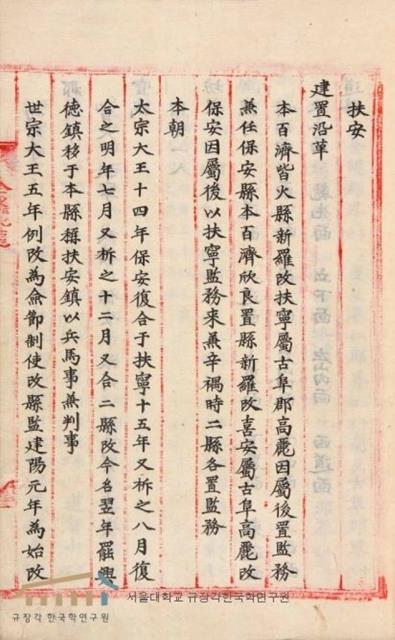 扶安
建置沿革
本百濟皆火縣新羅改扶寧屬古阜郡高麗因屬後置監務
兼任保安縣本百濟欣良買縣新羅改喜安屬古阜高麗改
保安因屬後以扶寧監務來兼辛禑時二縣各置監務
本朝
太宗大王十四年保安復合于扶寧十五年又析之八月復
合之明年七月又析之十二月又合二縣改今名翌年罷興
德鎮移于本縣稱扶安鎮以兵馬事兼判事
世宗大王五年例改為僉節制使改縣監建陽元年為始改
규장각 한국학연구원
서울대학교 규장각한국학연구원